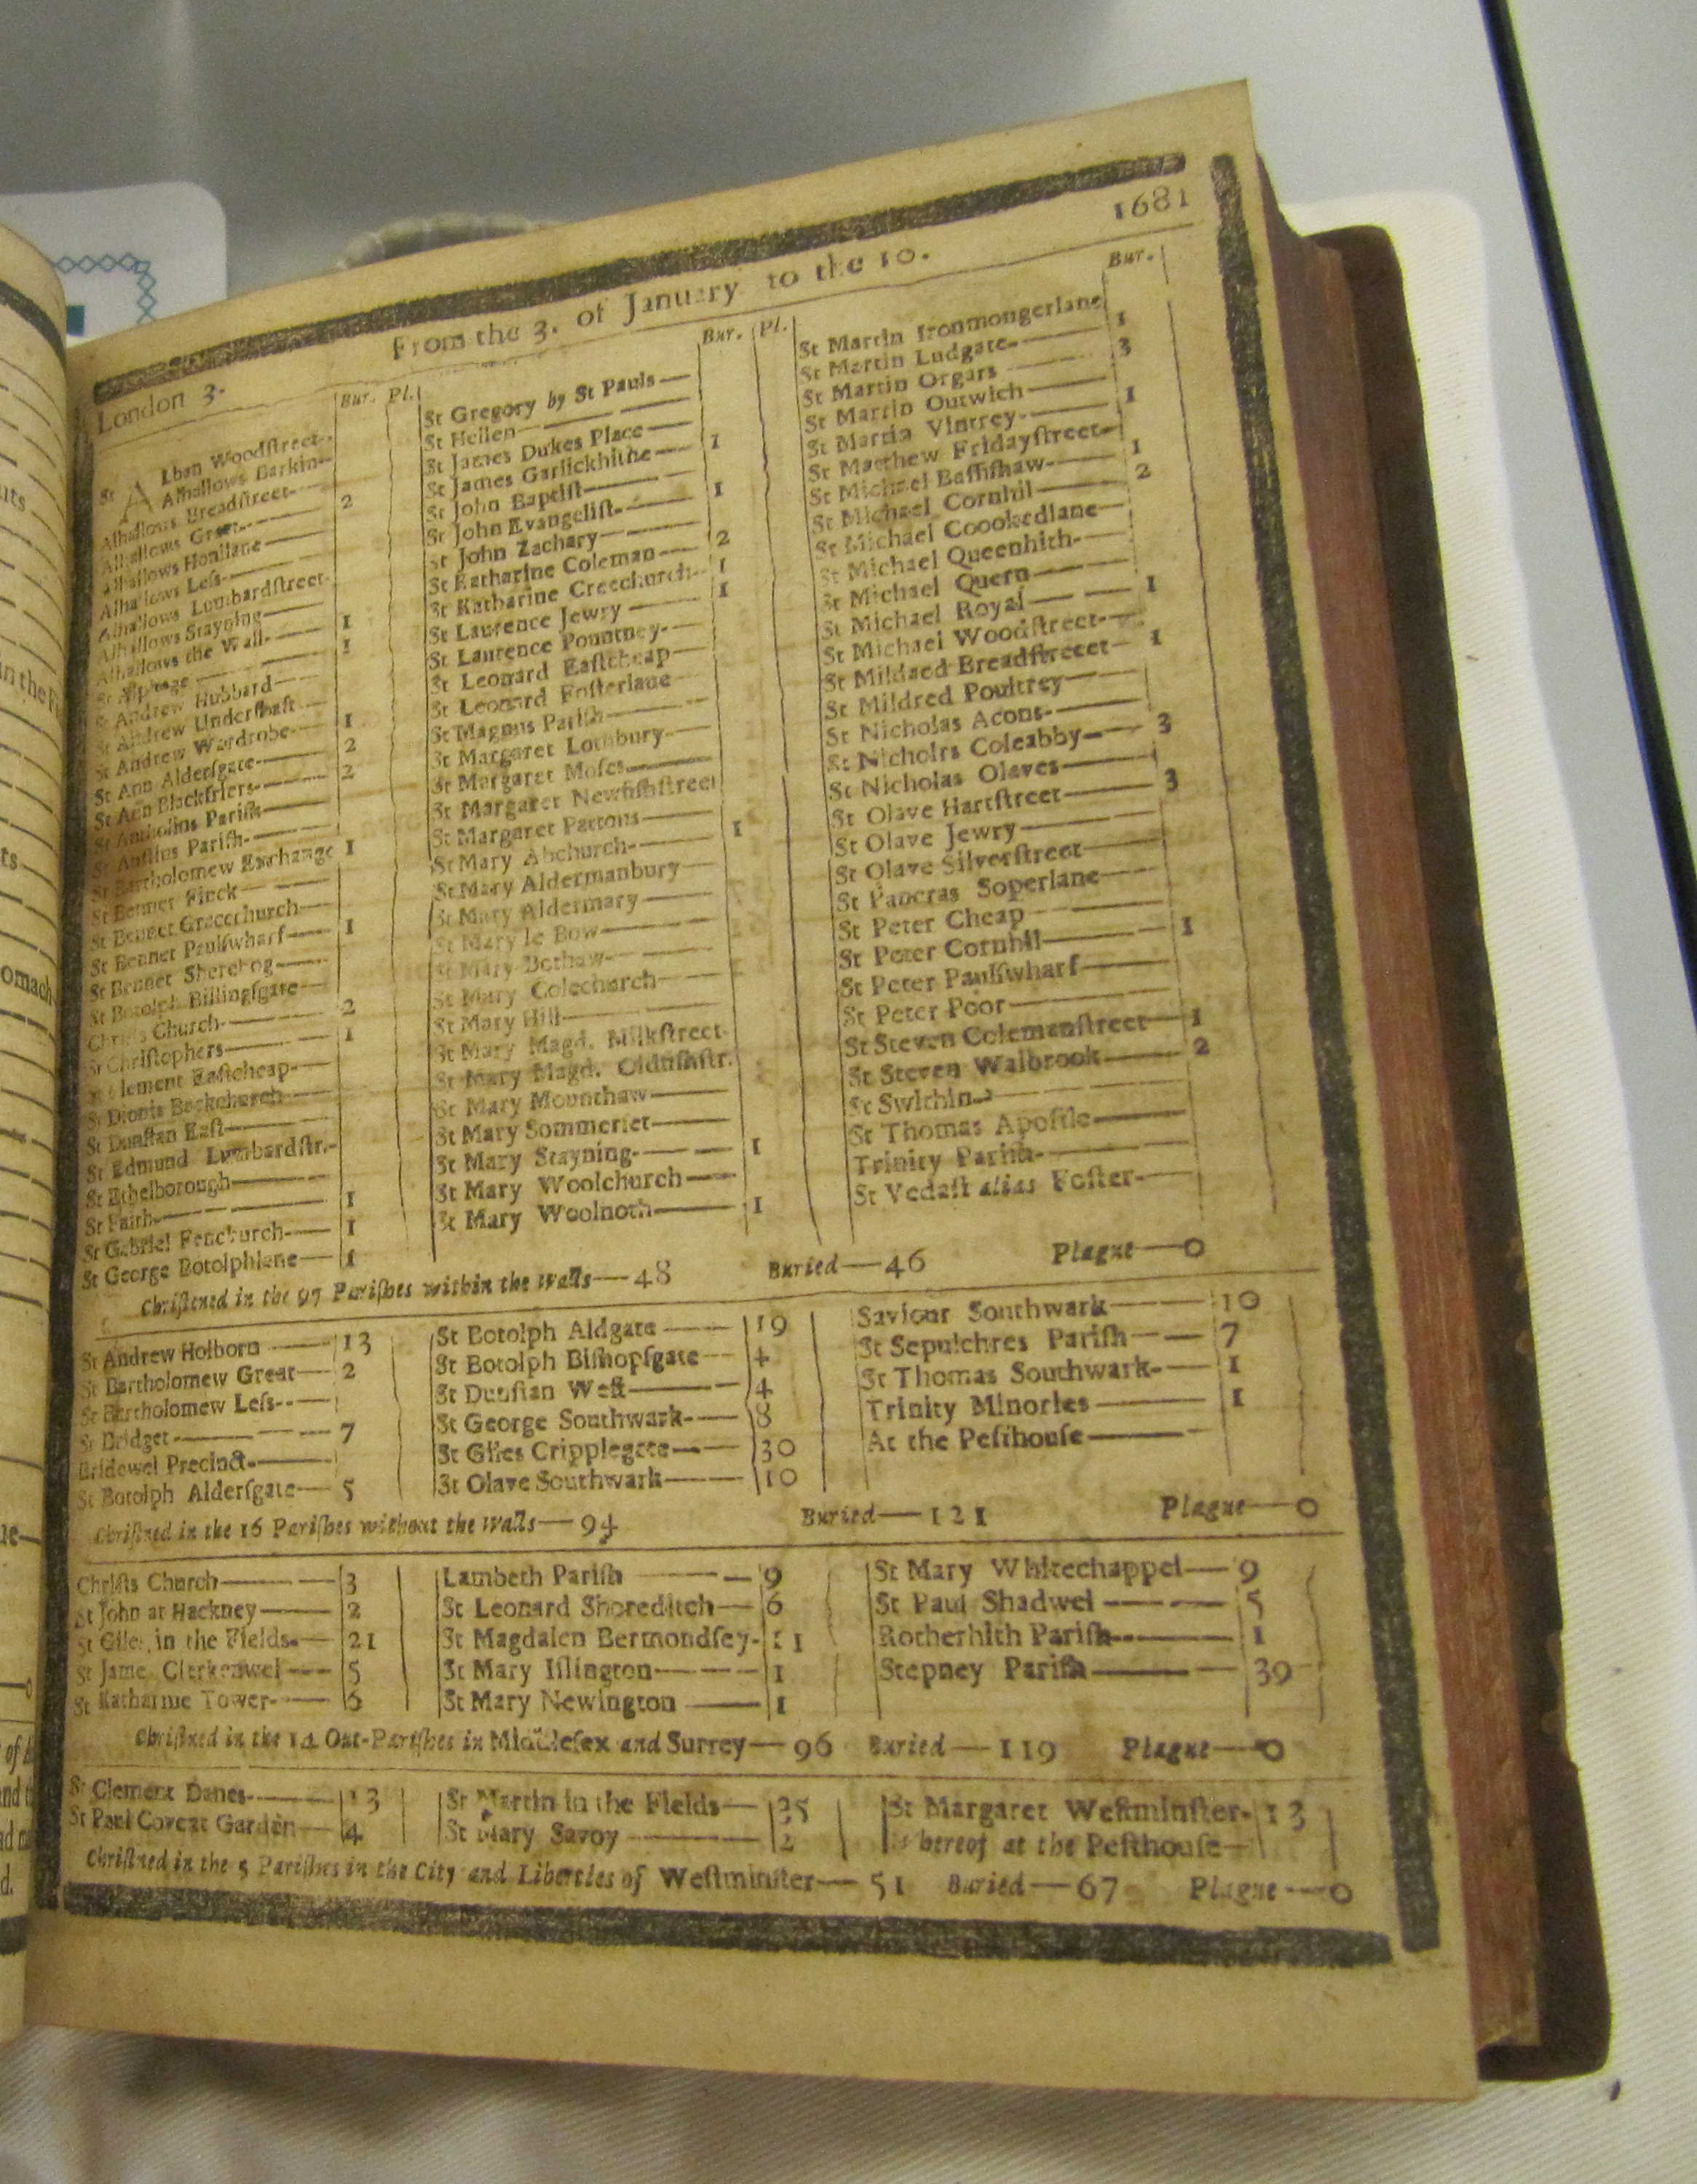 1681
From the 3. of January to the 10.
London 3.
Bur. Pl.
St Alban Woodſtreet
Alhallows Barkin
Alhallows Breadſtreet
2
Alhallows Great
Alhallows Honilane
Alhallows Leſs
Alhallows Lumbardſtreet
Alhallows Stayning
1
Alhallows the Wall
1
St Alphage
St Andrew Hubbard
St Andrew Underſhaft
1
St Andrew Wardrobe
2
St Ann Alderſgate
2
St Ann Blackfriers
St Antholins Pariſh
St Auſtins Pariſh
1
St Bartholomew Exchange
St Bennet Finck
St Bennet Gracechurch
1
St Bennet Paulſwharf
St Bennet Sherehog
St Botolph Billingſgate
2
Chriſts Church
1
St Chriſtophers
St Clement Eaſtcheap
St Dionis Backchurch
St Dunſtan Eaſt
St Edmund Lumbardſtr.
St Ethelborough
1
St Faith
1
St Gabriel Fenchurch
1
St George Botolphlane
Bur. Pl.
St Gregory by St Pauls
St Hellen
St James Dukes Place
1
St James Garlickhithe
St John Baptiſt
1
St John Evangeliſt
St John Zachary
2
St Katharine Coleman
1
St Katharine Creechurch
1
St Laurence Jewry
St Laurence Pountney
St Leonard Eaſtcheap
St Leonard Foſterlane
St Magnus Pariſh
St Margaret Lothbury
St Margaret Moſes
St Margaret Newfiſhſtreet
St Margaret Pattons
1
St Mary Abchurch
St Mary Aldermanbury
St Mary Aldermary
St Mary le Bow
St Mary Bothaw
St Mary Colechurch
St Mary Hill
St Mary Magd. Milkſtreet
St Mary Magd. Oldfiſhſtr.
St Mary Mounthaw
St Mary Sommerſet
St Mary Stayning 1
St Mary Woolchurch
St Mary Woolnoth 1
Bur.
St Martin Ironmongerlane
1
St Martin Ludgate
3
St Martin Orgars
St Martin Outwich
1
St Martin Vintrey
St Matthew Fridayſtreet
1
St Michael Baſſiſhaw
2
St Michael Cornhil
St Michael Coookedlane
St Michael Queenhith
St Michael Quern
St Michael Royal 1
St Michael Woodſtreet
St Mildaed Breadſtreeet 1
St Mildred Poultrey
St Nicholas Acons
St Nicholrs Coleabby 3
St Nicholas Olaves
St Olave Hartſtreet 3
St Olave Jewry
St Olave Silverſtreet
St Pancras Soperlane
St Peter Cheap
St Peter Cornhil 1
St Peter Paulſwharf
St Peter Poor
St Steven Colemanſtreet 1
St Steven Walbrook 2
St Swithin
St Thomas Apoſtle
Trinity Pariſh
St Vedaſt alias Foſter
Chriſtened in the 97 Pariſhes within the Walls—48 Buried—46 Plague—0
St Andrew Holborn 13
St Bartholomew Great 2
St Bartholomew Leſs
St Bridget 7
Bridewel Precinct
St Botolph Alderſgate 5
St Botolph Aldgate 19
St Botolph Biſhopſgate 4
St Dunſtan Weſt 4
St George Southwark 8
St Giles Cripplegate 30
St Olave Southwark 10
Saviour Southwark 10
St Sepulchres Pariſh 7
St Thomas Southwark 1
Trinity Minories 1
At the Peſthouſe
Chriſtned in the 16 Pariſhes without the Walls—94 Buried—121 Plague—0
Chriſts Church 3
St John at Hackney 2
St Giles in the Fields 21
St Jame Clerkenwel 5
St Katharine Tower 6
Lambeth Pariſh 9
St Leonard Shoreditch 6
St Magdalen Bermondſey 11
St Mary Iſlington 1
St Mary Newington 1
St Mary Whitechappel 9
St Paul Shadwel 5
Rotherhith Pariſh 1
Stepney Pariſh 39
Chriſtned in the 14 Out-Pariſhes in Middleſex and Surrey—96 Buried—119 Plague—0
St Clement Danes 13
St Paul Covent Garden 4
St Martin in the Fields 35
St Mary Savoy 2
St Margaret Weſtminſter 13
Whereof at the Peſthouſe
Chriſtned in the 5 Pariſhes in the City and Liberties of Weſtminſter—51 Buried—67 Plague—0